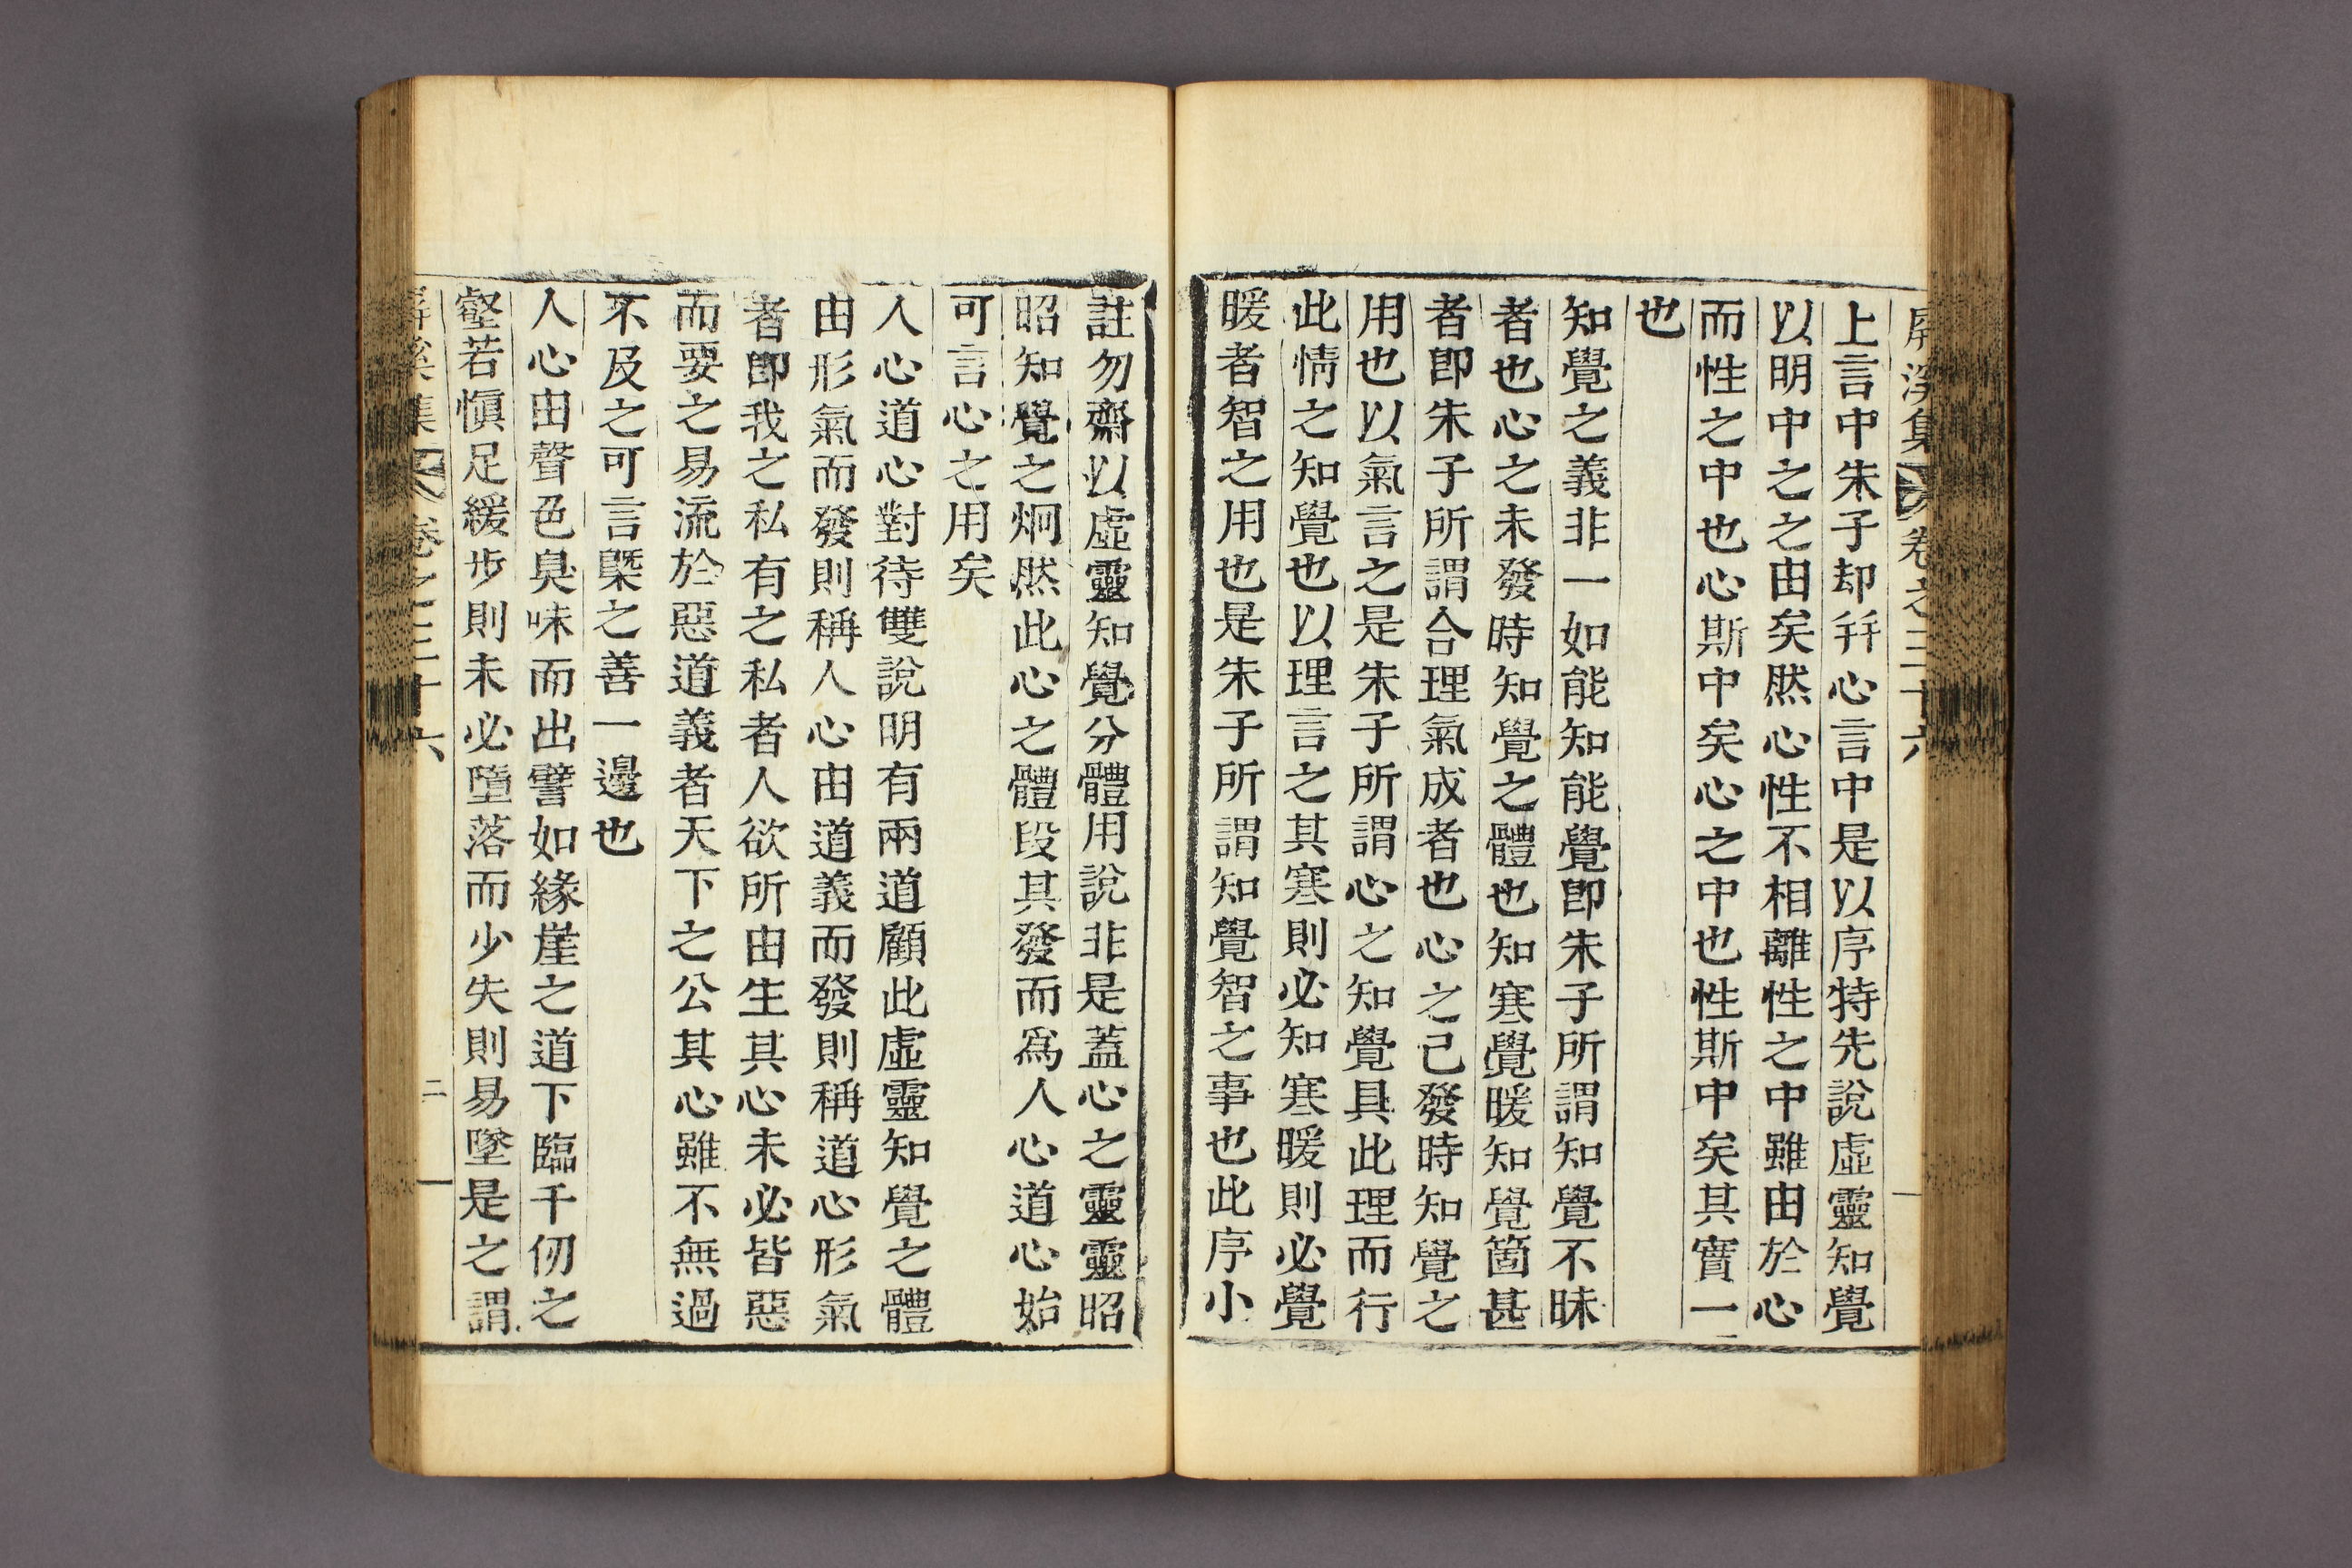 屏溪集 卷之三十六
上言中朱子却幷心言中是以序特先說虛靈知覺
以明中之之由矣然心性不相離性之中雖由於心
而性之中也心斯中矣心之中也性斯中矣其實一
也
知覺之義非一如能知能覺卽朱子所謂知覺不昧
者也心之未發時知覺之體也知寒覺暖知覺箇甚
者卽朱子所謂合理氣成者也心之已發時知覺之
用也以氣言之是朱子所謂心之知覺具此理而行
此情之知覺也以理言之其寒則必知寒暖則必覺
暖者智之用也是朱子所謂知覺智之事也此序小
註勿齋以虛靈知覺分體用說非是蓋心之靈靈昭
昭知覺之炯然此心之體段其發而爲人心道心始
可言心之用矣
人心道心對待雙說明有兩道顧此虛靈知覺之體
由形氣而發則稱人心由道義而發則稱道心形氣
者卽我之私有之私者人欲所由生其心未必皆惡
而要之易流於惡道義者天下之公其心雖不無過
不及之可言槩之善一邊也
人心由聲色臭味而出譬如緣崖之道下臨千仞之
壑若愼足緩步則未必墮落而少失則易墜是之謂
屏溪集 卷之三十六 二